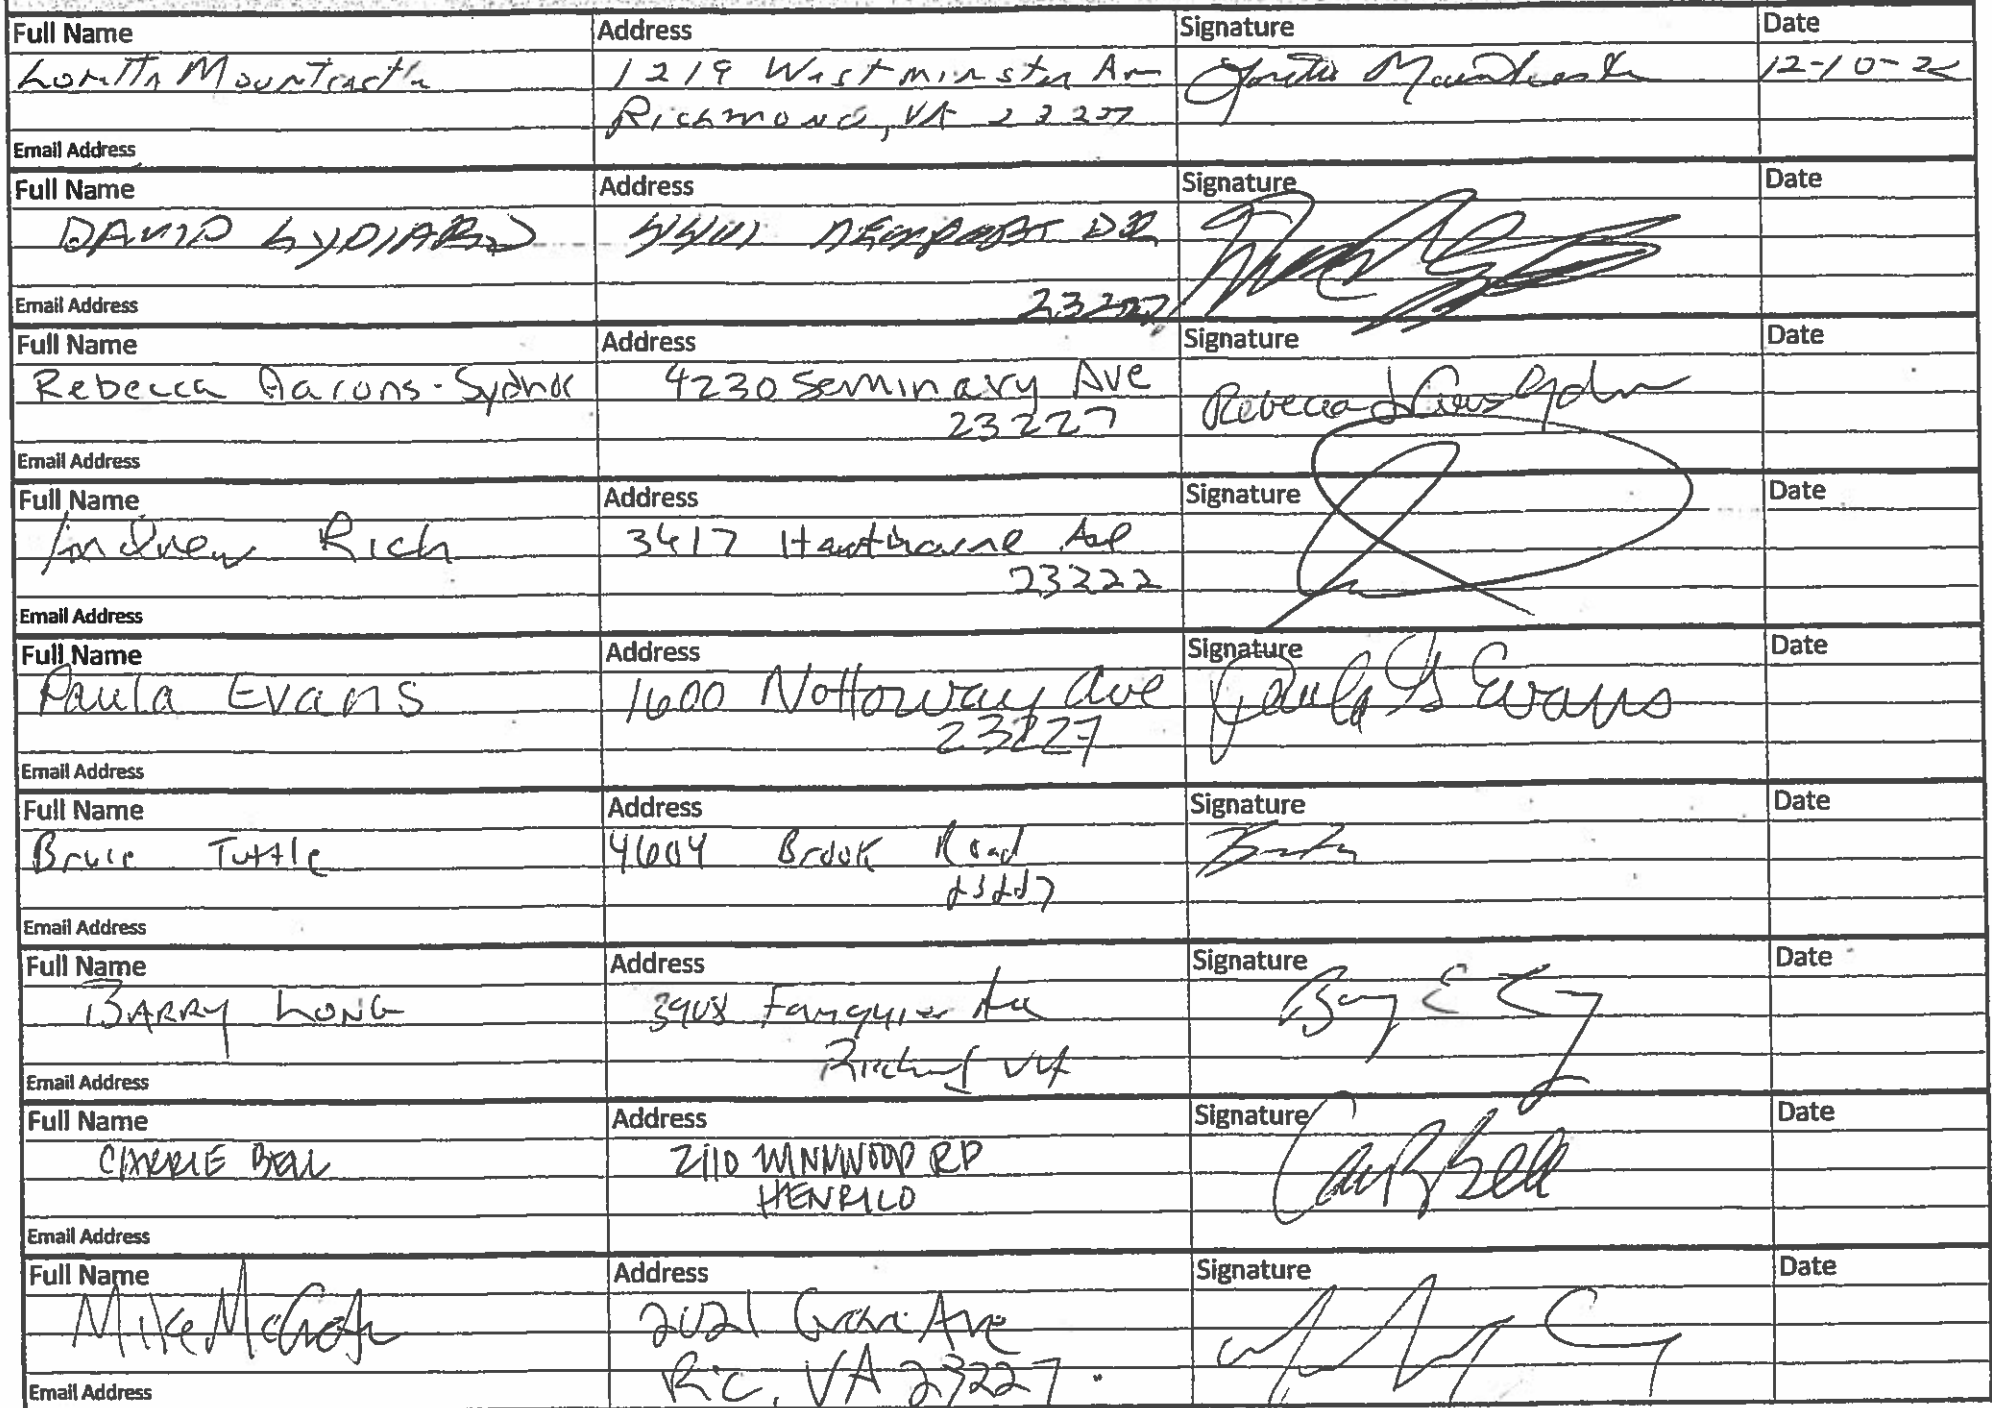 Full Name Address Signature Date
Loretta Mountcastle 1219 Westminster Av Loretta Mountcastle 12-10-22
Richmond, VA 23227
Email Address
Full Name Address Signature Date
DAVID LYDIARD DR
23227
Email Address
Full Name Address Signature Date
Rebecca Aarons-Sydnor 4230 Seminary Ave Rebecca
23227
Email Address
Full Name Address Signature Date
Andrew Rich 3417 Hawthorne Ave
23222
Email Address
Full Name Address Signature Date
Paula Evans 1600 Nottoway Ave Paula G Evans
23227
Email Address
Full Name Address Signature Date
Bruce Tuttle 4604 Brook Road
23227
Email Address
Full Name Address Signature Date
BARRY LONG 3908 Fauquier Ave
Richmond VA
Email Address
Full Name Address Signature Date
CARRIE BELL 2110 WINNWOOD RD
HENRICO
Email Address
Full Name Address Signature Date
Mike 2021 Grove Ave
Ric, VA 23227
Email Address